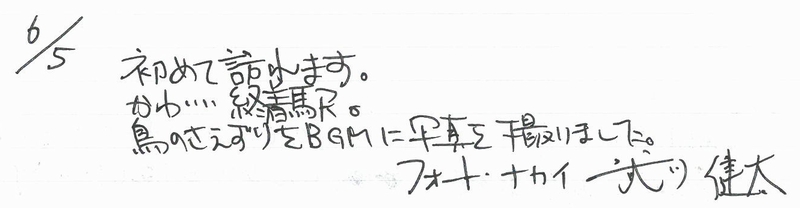 6/5
初めて訪れます。
かわ…. 終着駅。
鳥のさえずりをBGMに写真を撮りました。
フォート・ナカイ 健太